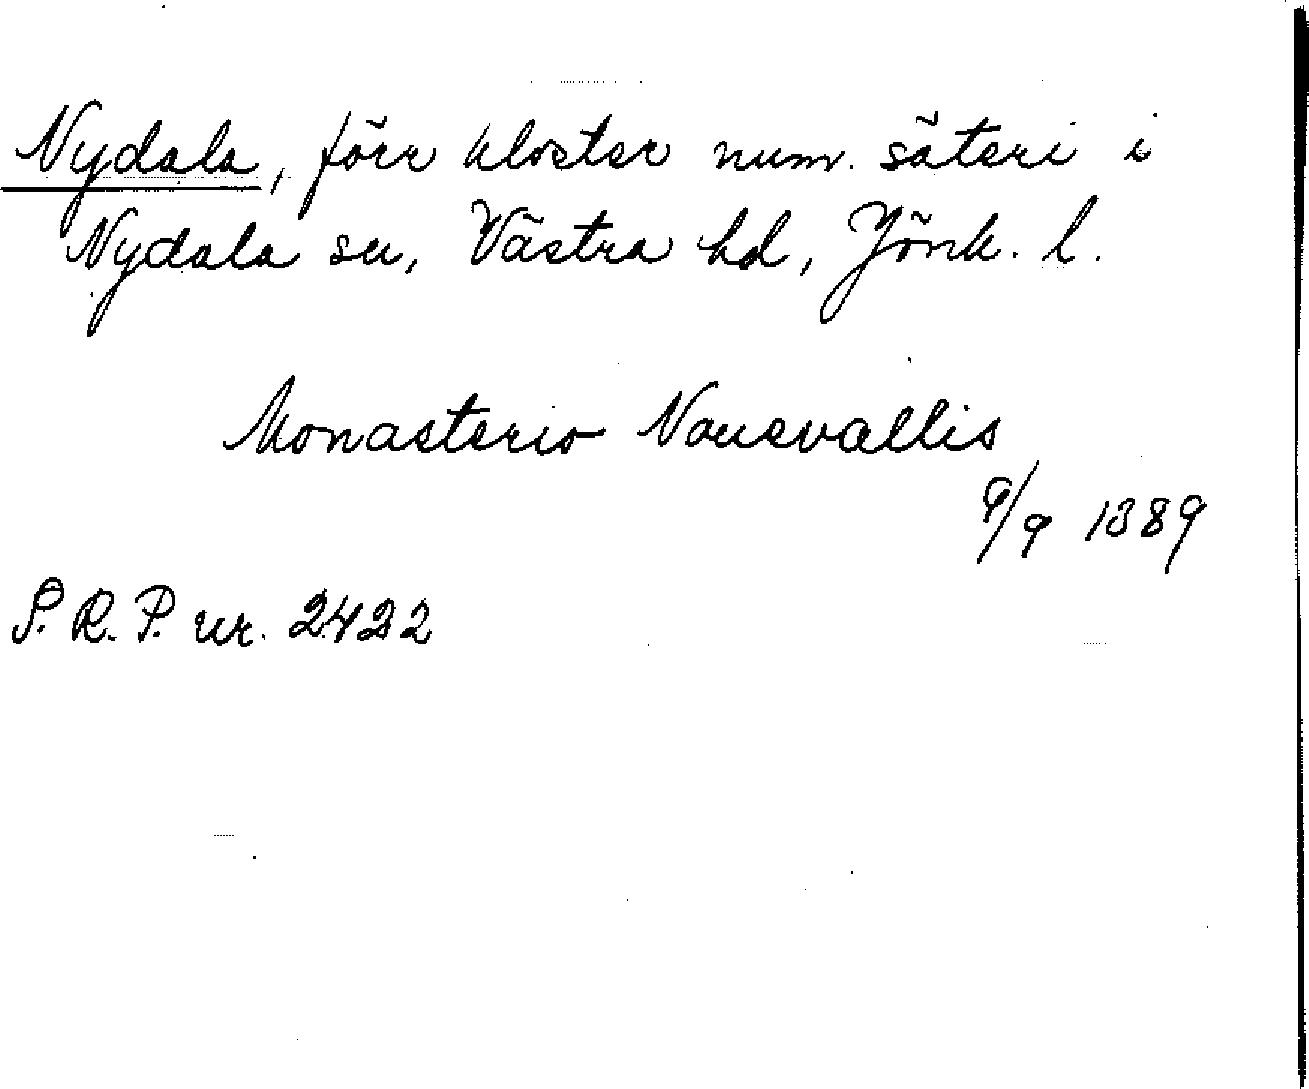 Nydala, förr kloster num. säteri i
Nydala sn, Västra hd, Jönk. l.
Monasterio Nouevallis
9/9 1389
S. R. P. nr. 2422